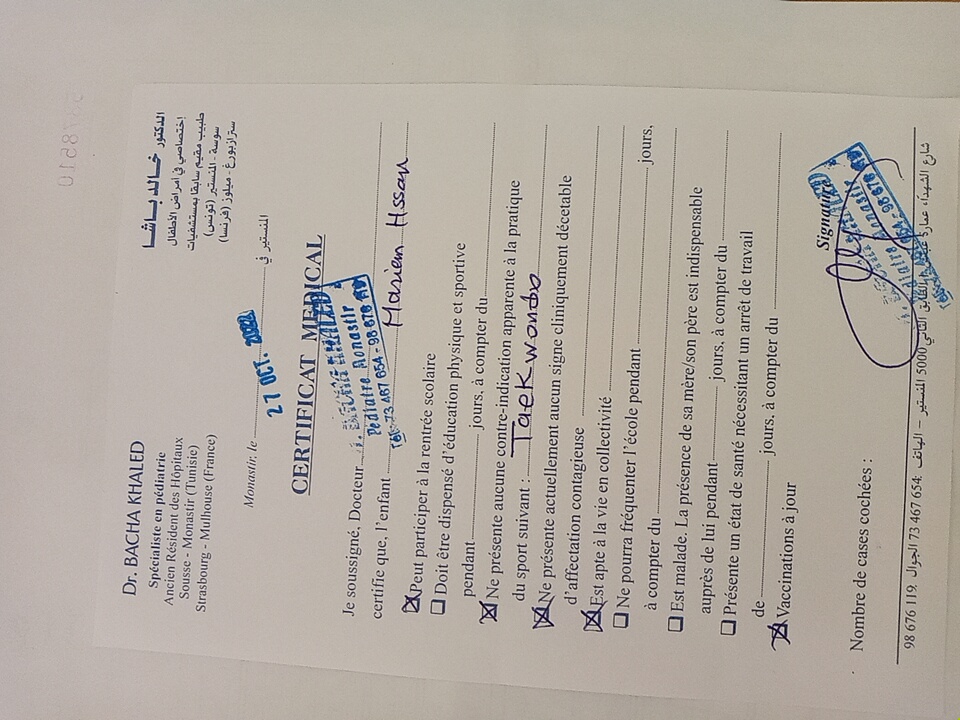 Dr. BACHA KHALED
Spécialiste en pédiatrie
Ancien Résident des Hôpitaux
Sousse - Monastir (Tunisie)
Strasbourg - Mulhouse (France)
الدكتور خالد باشا
إختصاصي في أمراض الأطفال
طبيب مقيم سابقا بمستشفيات
سوسة - المنستير (تونس)
سترازبورغ - ميلوز (فرنسا)
Monastir, le 27 OCT. 2022 المنستير في
CERTIFICAT MEDICAL
Je soussigné, Docteur
Pédiatre Monastir
Tél: 73 467 654 - 98 676 119
certifie que, l'enfant Mariem Hssan
☒ Peut participer à la rentrée scolaire
☐ Doit être dispensé d'éducation physique et sportive
pendant jours, à compter du
☒ Ne présente aucune contre-indication apparente à la pratique
du sport suivant : Taekwondo
☒ Ne présente actuellement aucun signe cliniquement décetable
d'affectation contagieuse
☒ Est apte à la vie en collectivité
☐ Ne pourra fréquenter l'école pendant jours,
à compter du
☐ Est malade. La présence de sa mère/son père est indispensable
auprès de lui pendant jours, à compter du
☐ Présente un état de santé nécessitant un arrêt de travail
de jours, à compter du
☒ Vaccinations à jour
Signature
Nombre de cases cochées :
شارع الشهداء عمارة الطابق الثاني 5000 المنستير - الهاتف: 73 467 654 الجوال 98 676 119